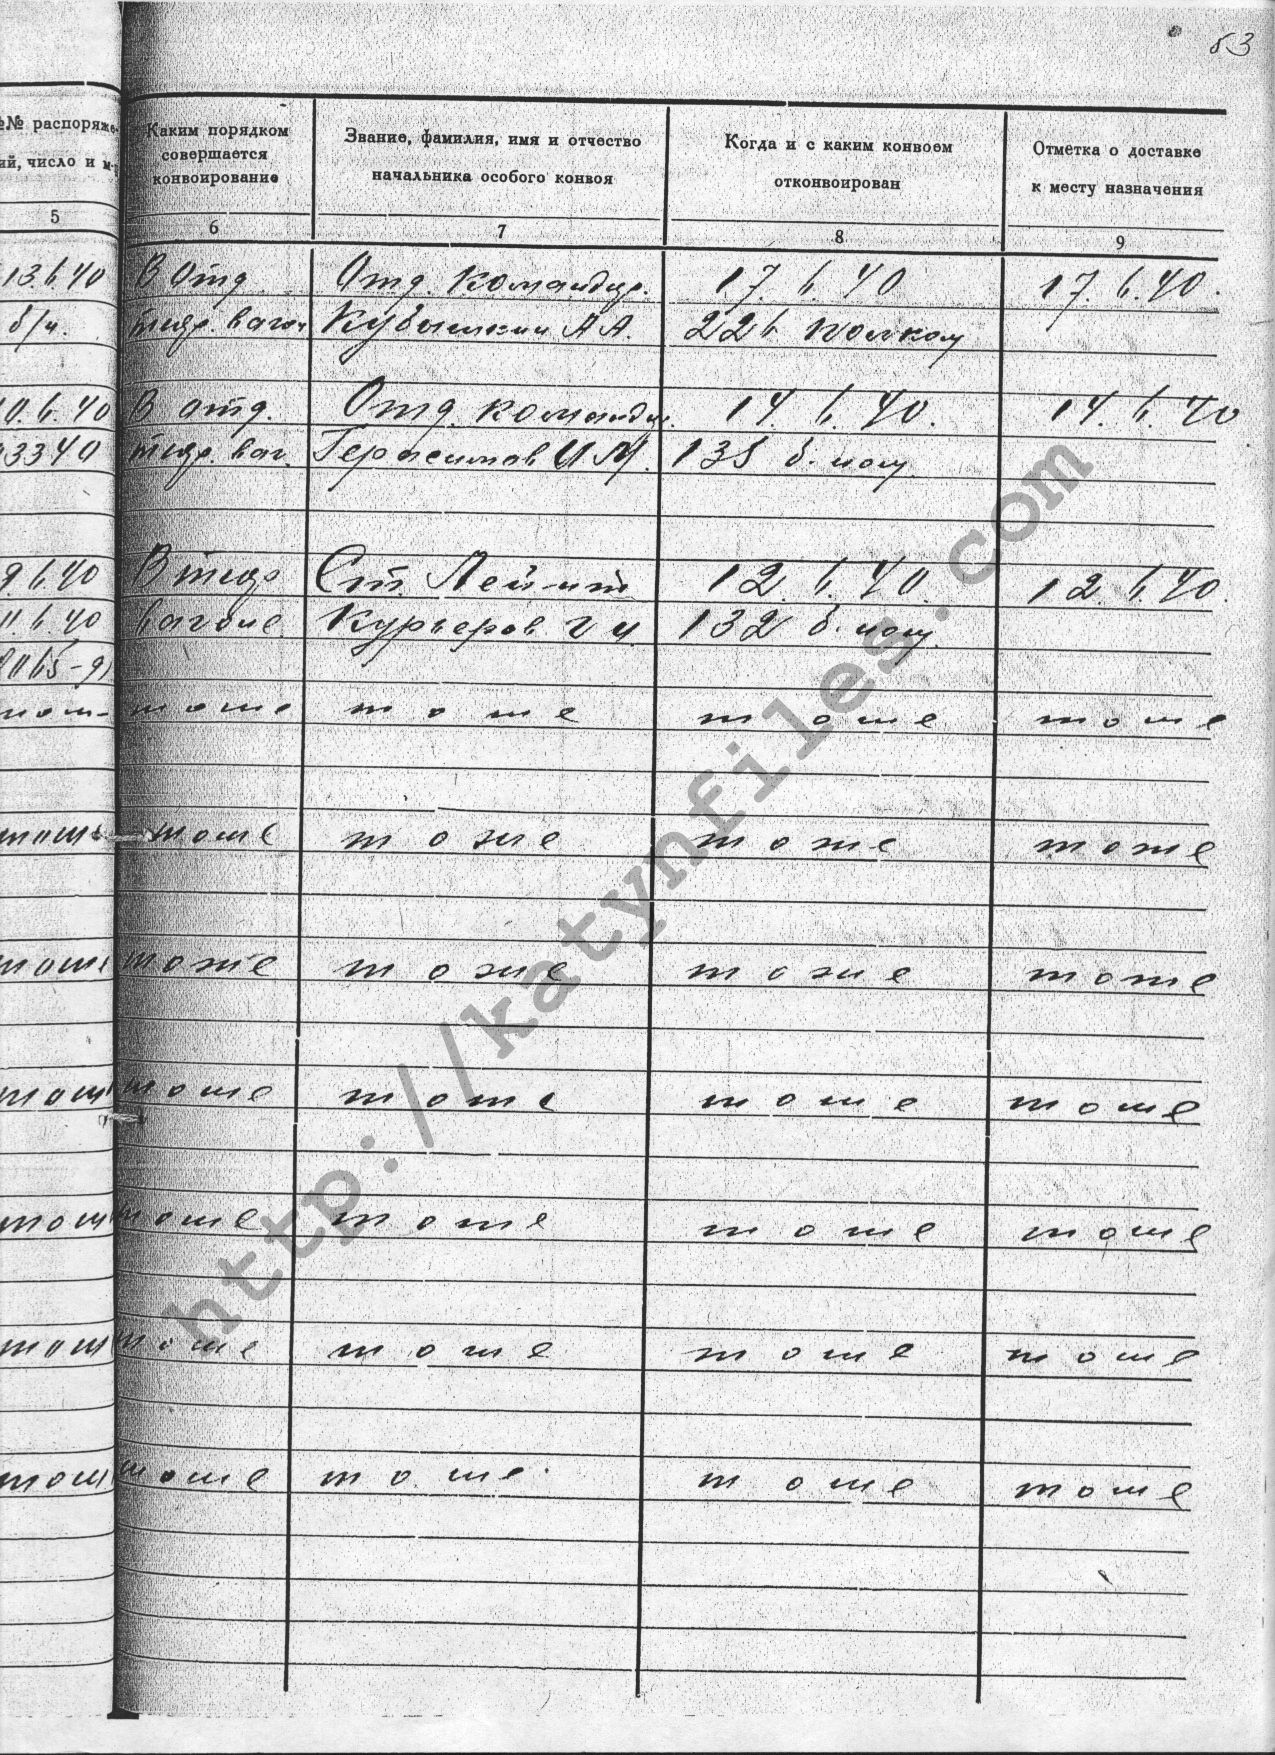 53
№№ распоряже-
ий, число и м-
Каким порядком
совершается
конвоирование
Звание, фамилия, имя и отчество
начальника особого конвоя
Когда и с каким конвоем
отконвоирован
Отметка о доставке
к месту назначения
5 6 7 8 9
13.6.40 В отд. Отд. командир. 17. 6. 40 17. 6. 40.
б/н. тюр. вагон Кубышкин А А. 226 полком
10.6.40 В отд. Отд. командир. 14. 6. 40. 14. 6. 40
3340 тюр. ваг. Герасимов И М. 135 б-ном
9.6.40 В тюр Ст. Лейт-нт 12. 6. 40. 12. 6. 40.
11.6.40 вагоне Курьеров Г И. 132 б-ном.
тоже тоже тоже тоже
тоже тоже тоже тоже
тоже тоже тоже тоже
тоже тоже тоже тоже
тоже тоже тоже тоже
тоже тоже тоже тоже
тоже тоже тоже тоже
http://katynfiles.com